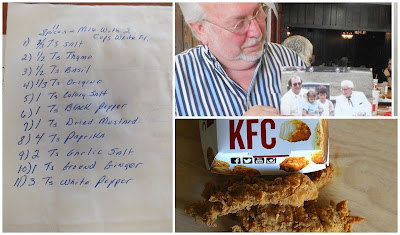 11
Spices - Mix With 2
Cups White Fl.
1) 2/3 Ts Salt
2) 1/2 Ts Thyme
3) 1/2 Ts Basil
4) 1/3 Ts Oregino
5) 1 Ts Celery Salt
6) 1 Ts Black Pepper
7) 1 Ts Dried Mustard
8) 4 Ts Paprika
9) 2 Ts Garlic Salt
10) 1 Ts Ground Ginger
11) 3 Ts White Pepper
KFC